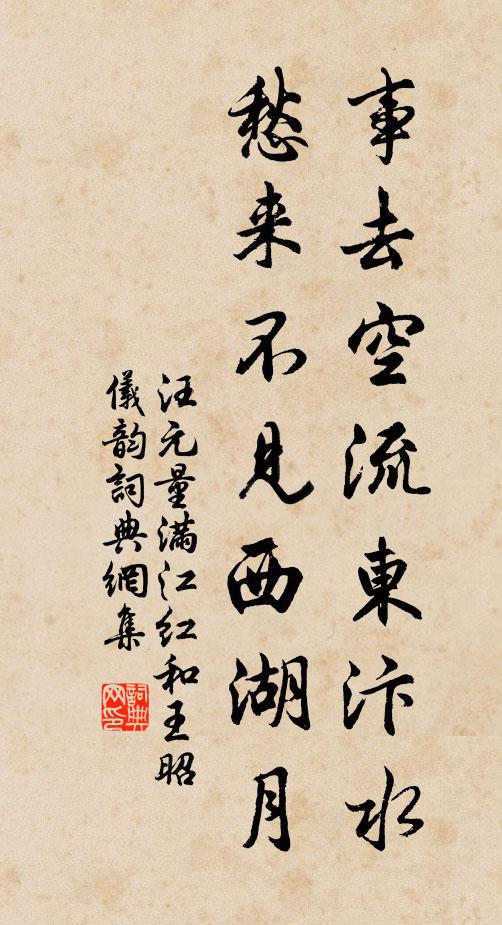 事去空流東汴水
愁来不見西湖月
汪元量满江红和王昭
儀韵詞典網集
詞典
网印